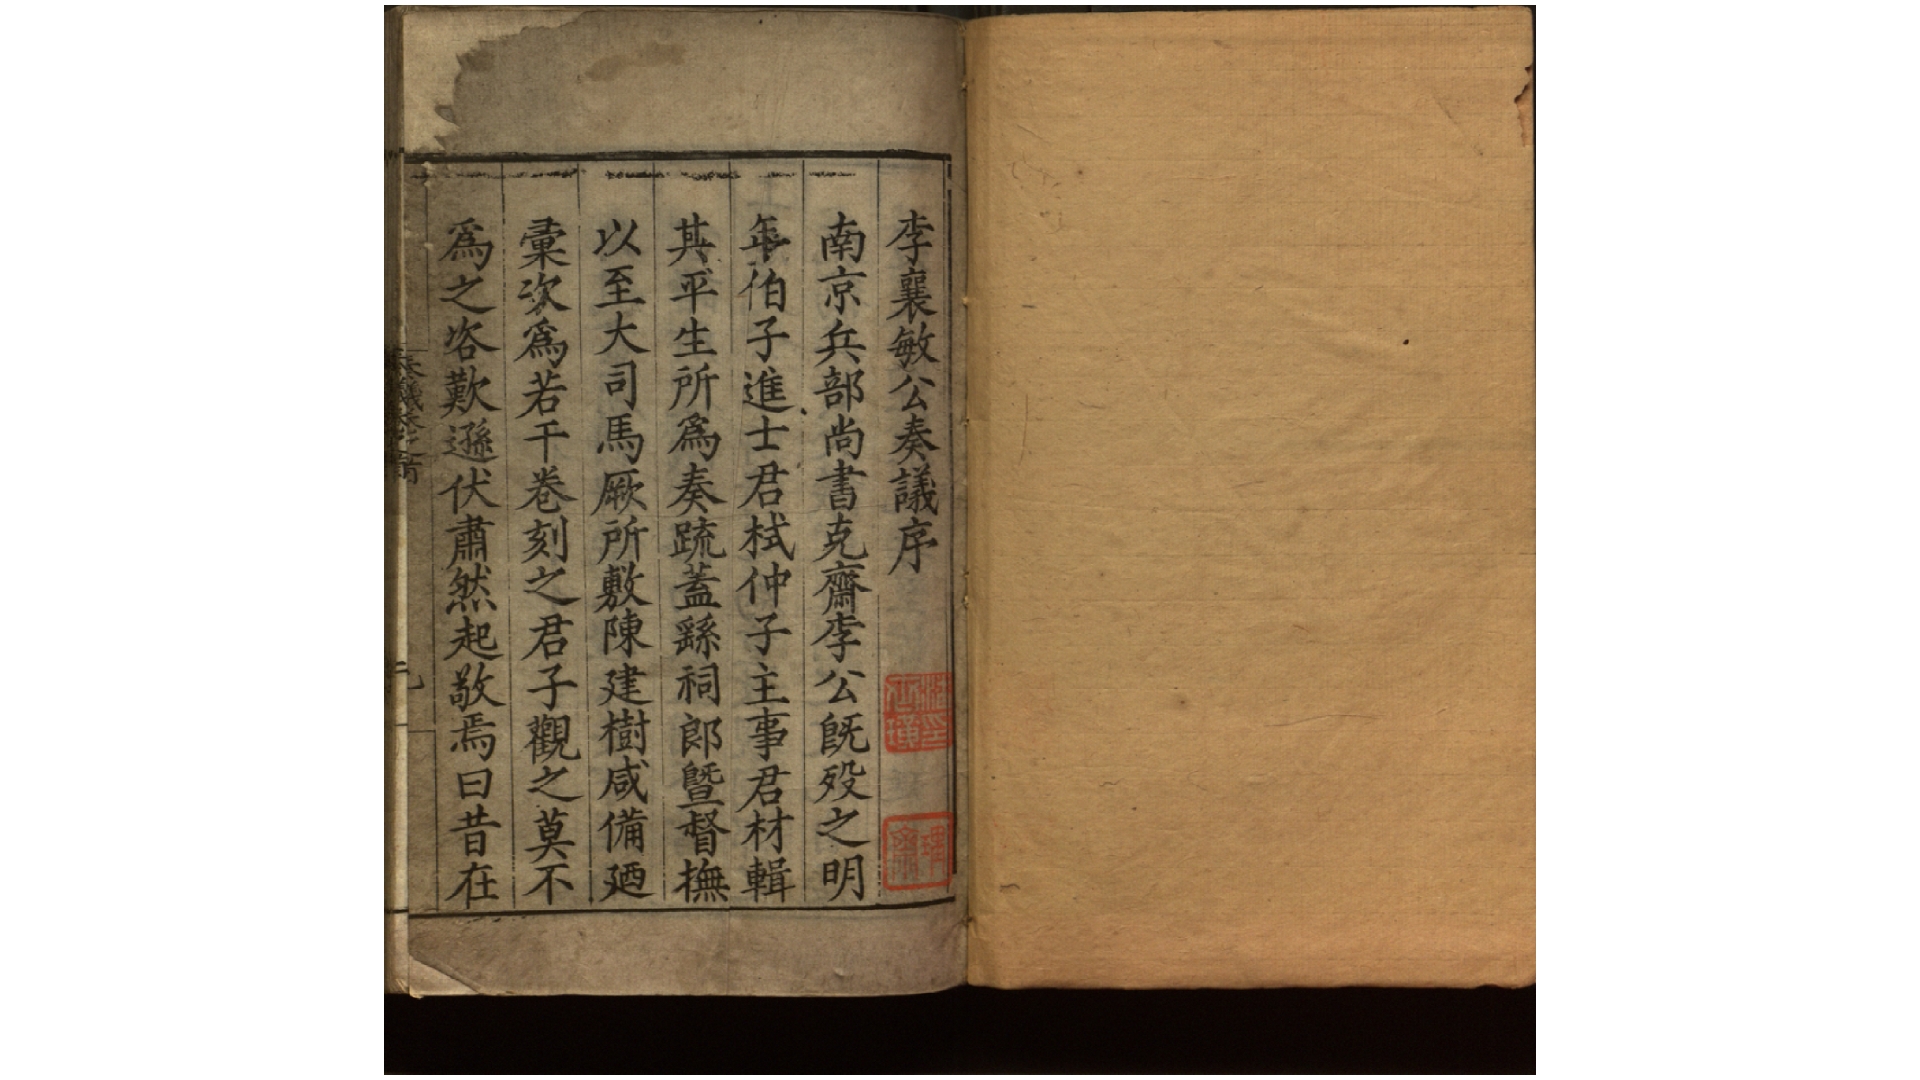 李襄敏公奏議序
南京兵部尚書克齋李公旣歿之明
年伯子進士君栻仲子主事君材輯
其平生所爲奏疏蓋繇祠郎曁督撫
以至大司馬厥所敷陳建樹咸備廼
彙次爲若干卷刻之君子觀之莫不
爲之咨歎遜伏肅然起敬焉曰昔在